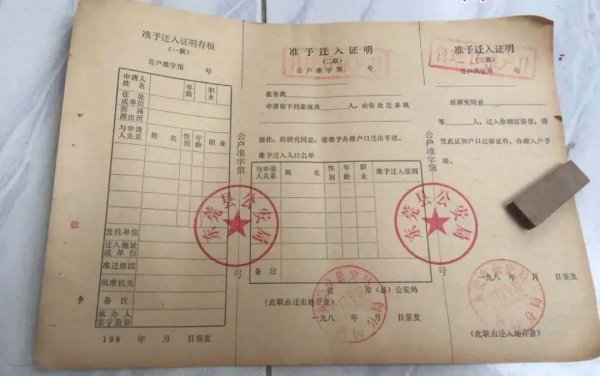 准予迁入证明存根
(一联)
公户准字第 号
申请人
姓名
年龄
职业
住址
或单位
所属
派出所
与申请
人关系
姓名
性别
年龄
职业
发往单位
迁入地址
或单位
准迁原因
批准机关
备注
承办人
签字盖章
198 年 月 日签发
公户准字第
号
准予迁入证明
(二联)
公户准字第 号
兹有我
申请将下列亲属共 人,由你处迁来我
居住,经研究同意,请准予办理户口迁出手续。
准予迁入人口名单
与申请
人关系
姓名
性别
年龄
职业
准予迁入原因
备注
省 市(县)公安局
(此联由迁出地存查)
一九八 年 月 日签发
东莞县公安局
公户准字第
号
准予迁入证明
(三联)
公户准字第 号
兹研究同意
等 人,迁入你辖区居住,请
凭此证和户口迁移证件,办理入户手
续。
东莞县公安局
一九八 年 月 日签发
(此联由迁入地存查)